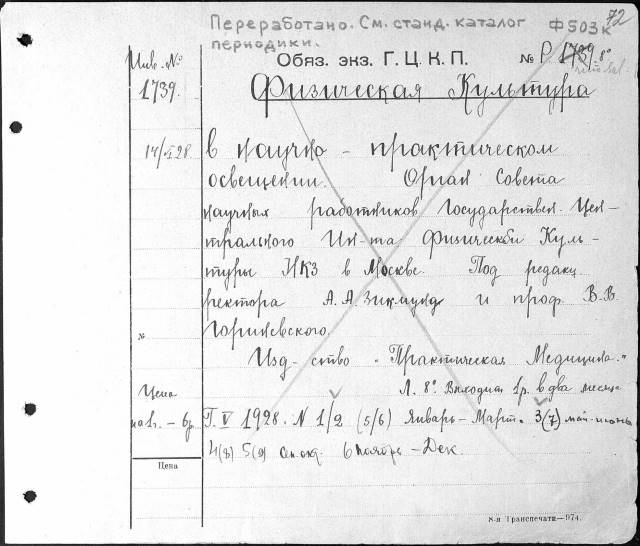 Переработано. См. станд. каталог периодики.
Ф503к
72
Инв. №
1739.
Обяз. экз. Г. Ц. К. П.
№ Р 1739. 8°
Физическая Культура
в научно-практическом
освещении. Орган Совета
научных работников Государствен. Цен-
трального Ин-та Физической Куль-
туры НКЗ в Москве. Под редакц.
ректора А. А. Зикмунд и проф. В. В.
Гориневского.
№
Изд-ство "Практическая Медицина."
Л. 8°. Выходит 1 р. в два месяца
Цена
на 1 г. – 6 р.
Г. V 1928. N 1/2 (5/6) Январь-Март. 3(7) май-июнь
4(8) 5(9) Сен. окд. 6 Ноябрь-Дек.
Цена
8-я Транспечати—974.